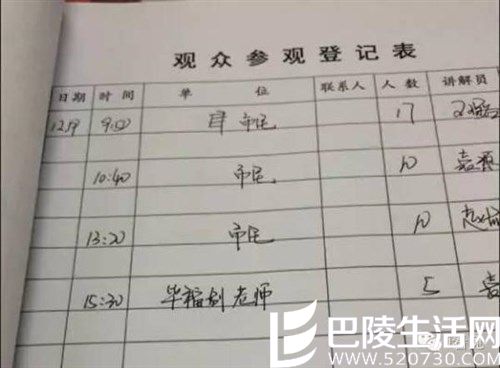 观众参观登记表
日期 时间 单位 联系人 人数 讲解员
12.19 9:00 市民 17
10:40 市民 10
13:20 市民 10
15:30 毕福剑老师 5
巴陵生活网
www.520730.com